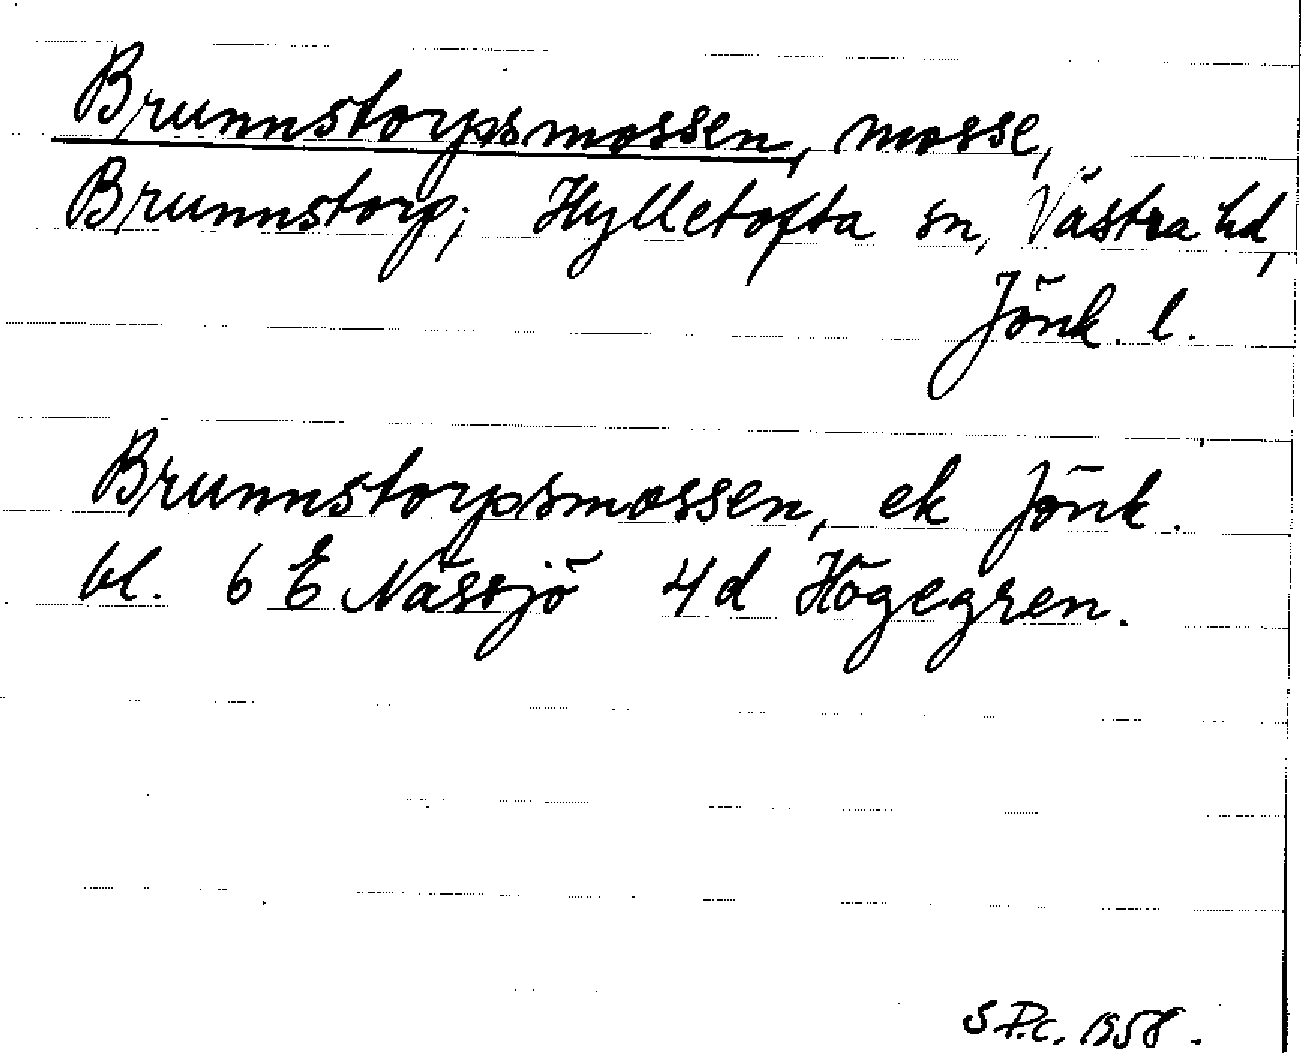 Brunnstorpsmossen, mosse,
Brunnstorp, Hylletofta sn, Västra hd,
Jönk. l.
Brunnstorpsmossen, ek Jönk.
bl. 6 E Nässjö 4d Högegren.
1958.